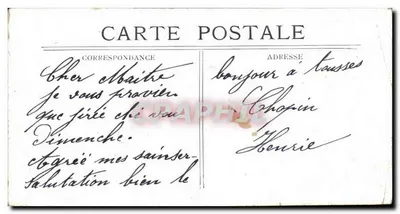 CARTE POSTALE
CORRESPONDANCE
Cher Maître
je vous provien
que firée ché vous
Dimenche.
Agréé mes sainser
Salutation bien le
ADRESSE
bonjour à tousses
Chopin
Henrie